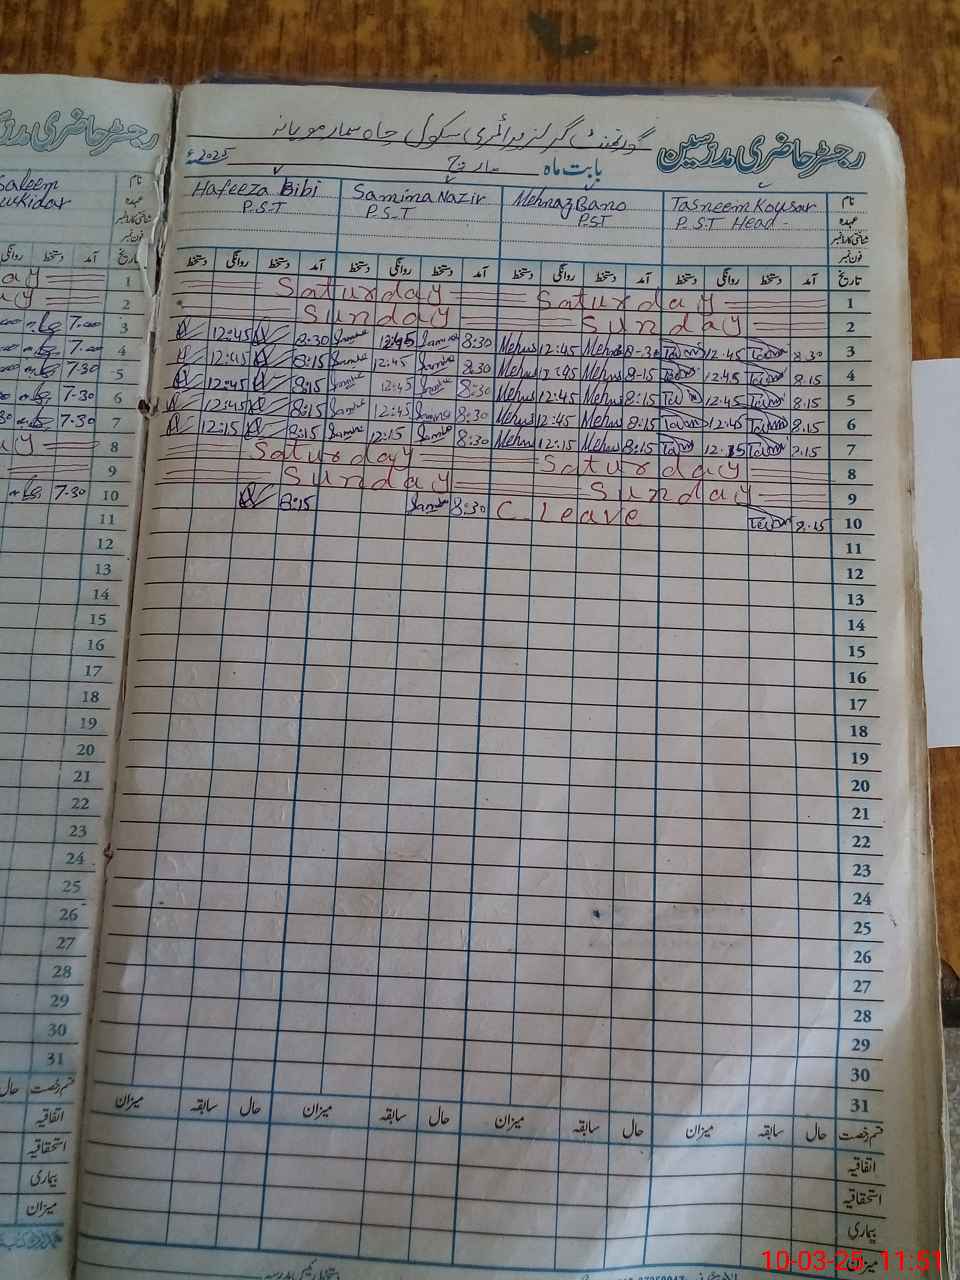 رجسٹر حاضری مدرسین
گورنمنٹ گرلز پرائمری سکول چاہ سمار موہانہ
بابت ماہ مارچ 2025ء
نام Tasneem Kousar Mehnaz Bano Samina Nazir Hafeeza Bibi
عہدہ P.S.T Head P.S.T P.S.T P.S.T
شناختی کارڈ نمبر
فون نمبر
تاریخ آمد دستخط روانگی دستخط آمد دستخط روانگی دستخط آمد دستخط روانگی دستخط آمد دستخط روانگی دستخط
1 Saturday Saturday
2 Sunday Sunday
3 8.30 12.45 8-30 12.45 8:30 12:45 8:30 12:45
4 8.15 12.45 8-15 12.45 8.30 12.45 8:15 12:45
5 8.15 12.45 8:15 12.45 8:30 12:45 8:15 12:45
6 8.15 12:45 8:15 12:45 8:30 12:45 8:15 12:45
7 8.15 12.15 8:15 12:15 8:30 12:15 8:15 12:15
8 Saturday Saturday
9 Sunday Sunday
10 8.15 C. Leave 8:30 8:15
11
12
13
14
15
16
17
18
19
20
21
22
23
24
25
26
27
28
29
30
31
قسم رخصت حال سابقہ میزان حال سابقہ میزان حال سابقہ میزان حال سابقہ میزان
اتفاقیہ
استحقاقیہ
بیماری
میزان
رجسٹر حاضری
Saleem
نام
عہدہ
شناختی کارڈ نمبر
فون نمبر
تاریخ آمد دستخط
1
2
3 7.00
4 7.00
5 7.30
6 7-30
7 7.30
8
9
10 7.30
11
12
13
14
15
16
17
18
19
20
21
22
23
24
25
26
27
28
29
30
31
قسم رخصت حال
اتفاقیہ
استحقاقیہ
بیماری
میزان
10-03-25 11:51